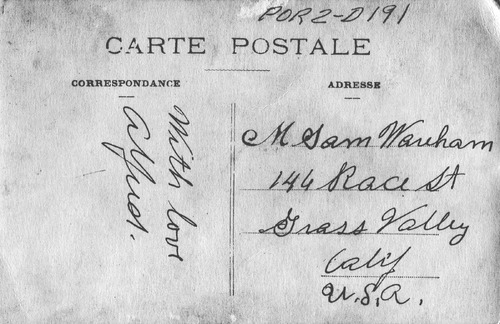 POR2-D191
CARTE POSTALE
CORRESPONDANCE
ADRESSE
With love
Alfred.
M Sam Wareham
144 Race St
Grass Valley
Calif
U.S.A.